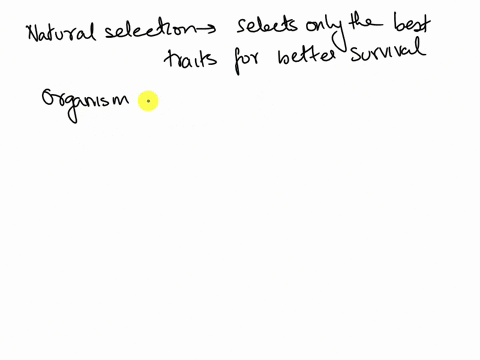 Natural selection → selects only the best
traits for better survival
Organism